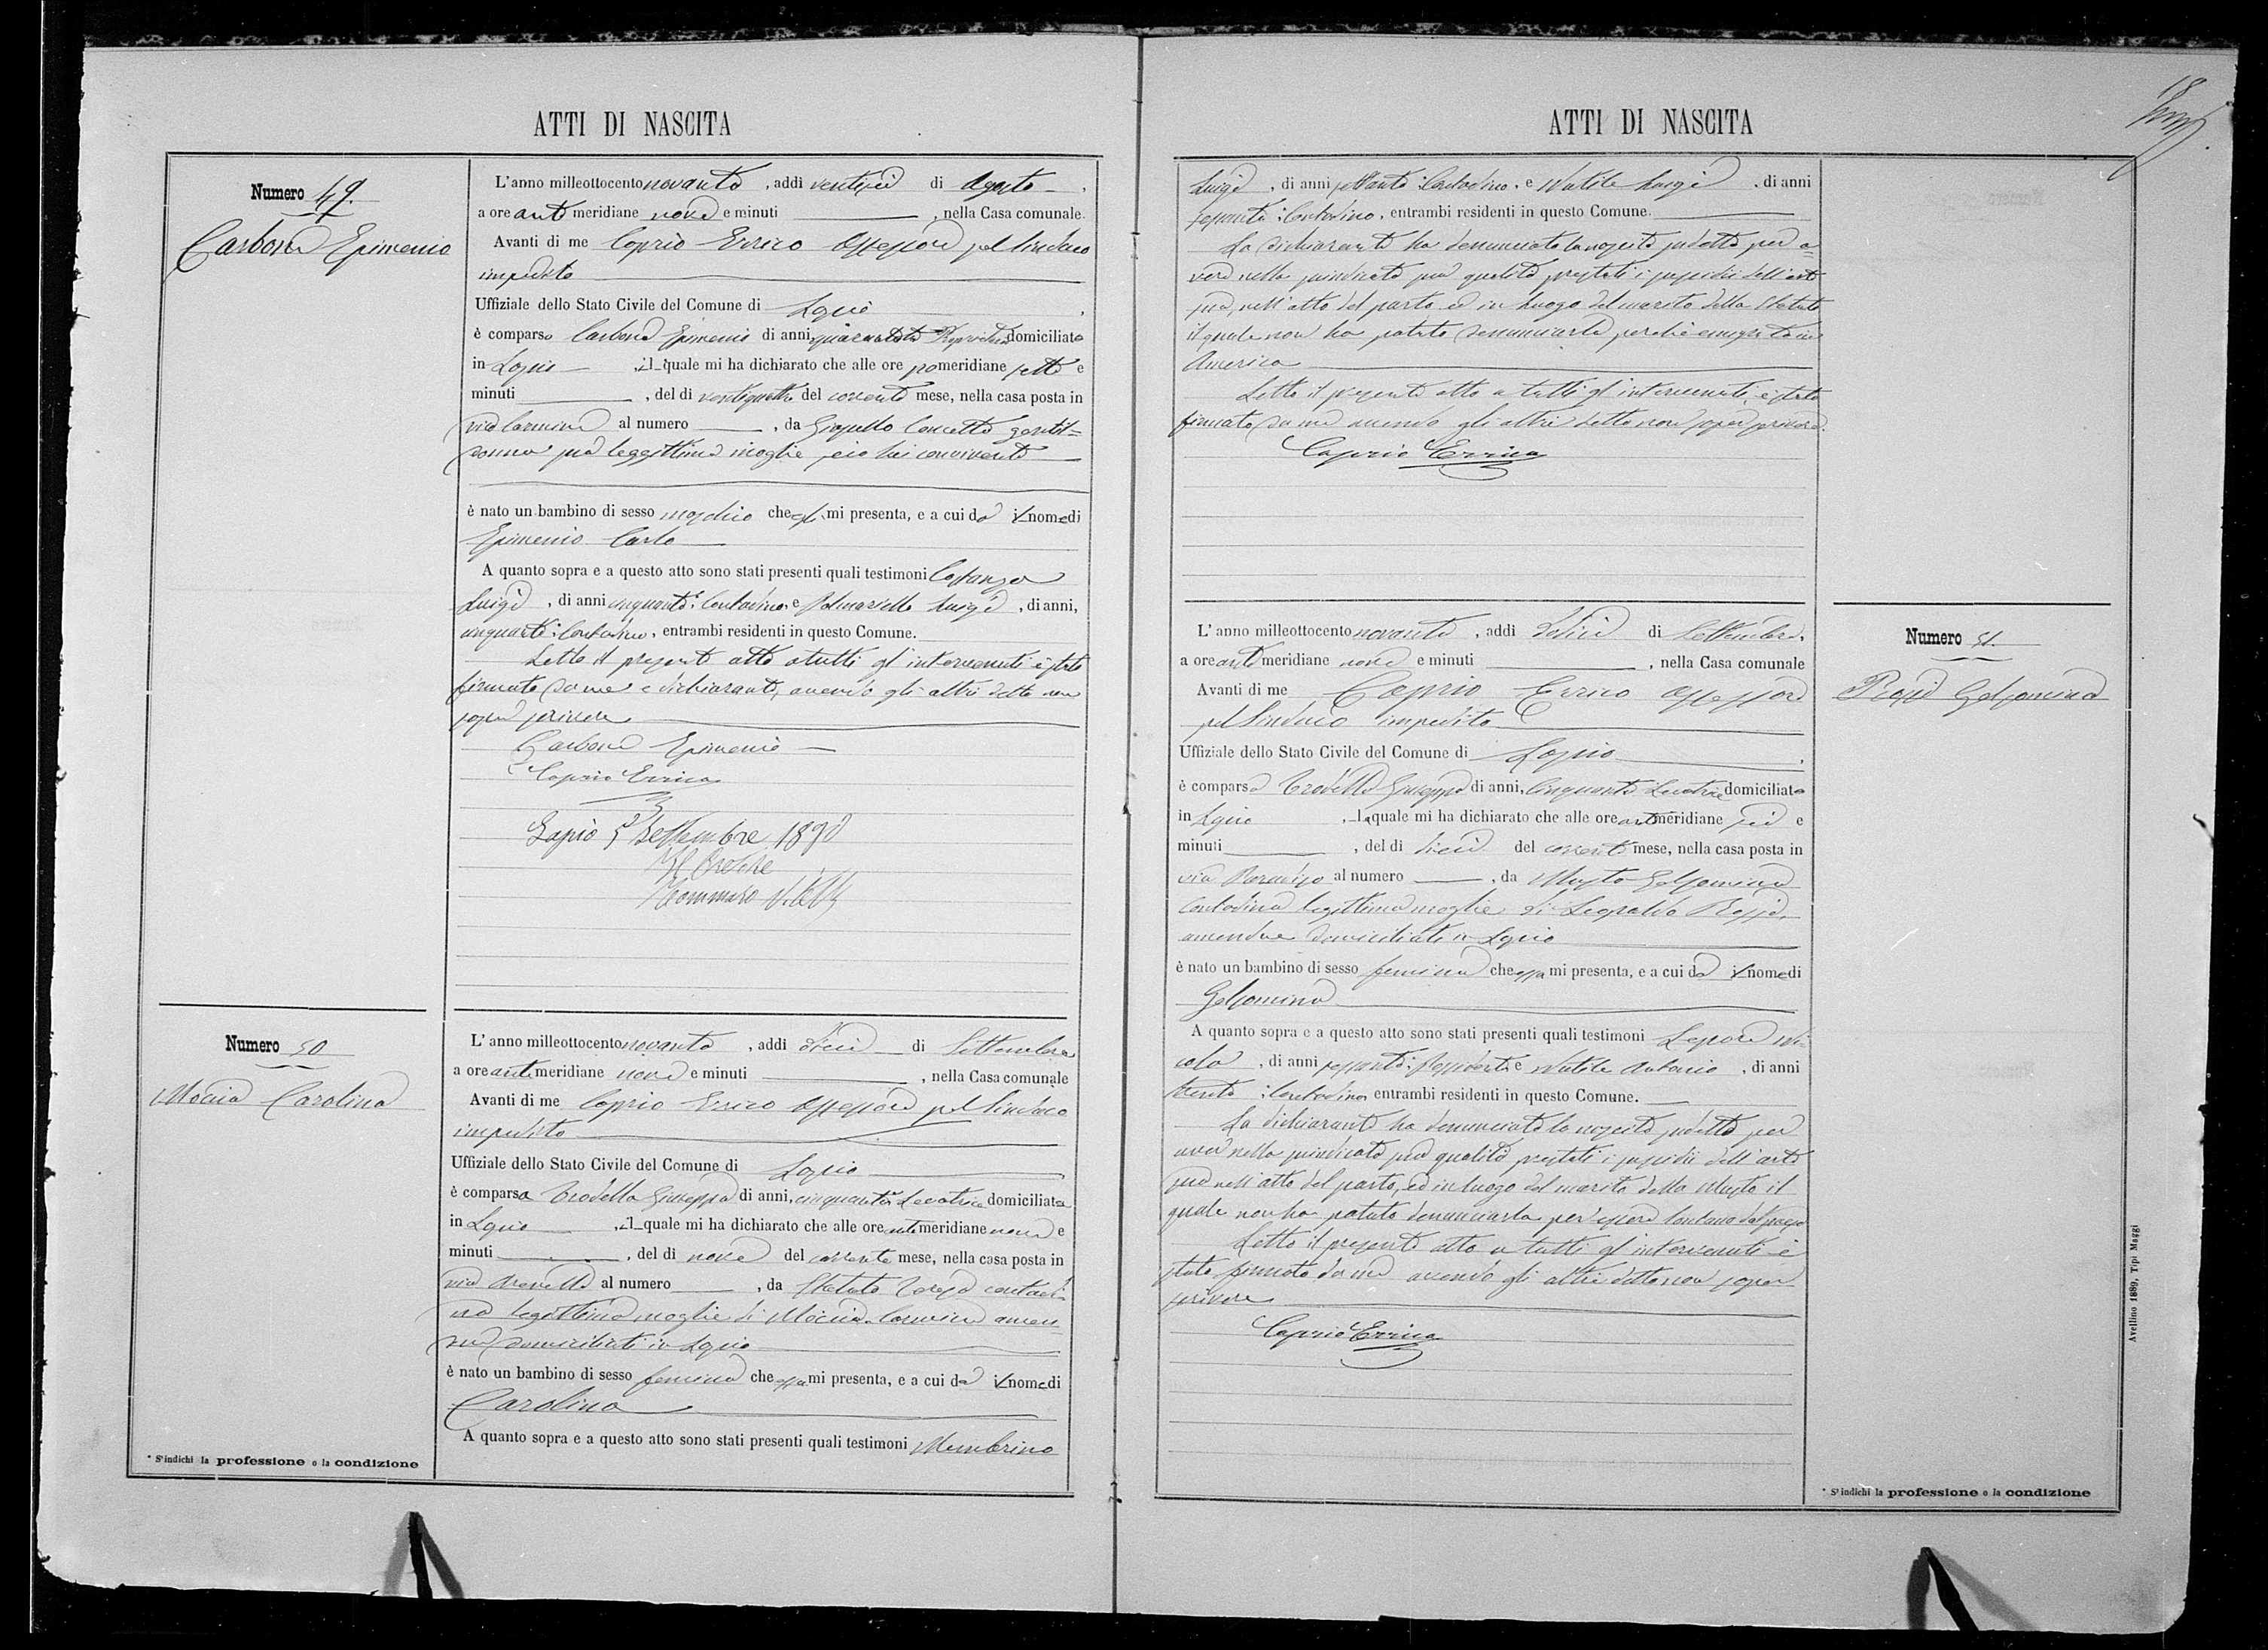 ATTI DI NASCITA
Numero 49.
Carbone Epimenio
L'anno milleottocento novanta, addì ventisei di Agosto,
a ore anti meridiane nove e minuti, nella Casa comunale.
Avanti di me Caprio Errico Assessore pel Sindaco
impedito
Uffiziale dello Stato Civile del Comune di Lapio,
è comparso Carbone Epimenio di anni domiciliato
in Lapio, il quale mi ha dichiarato che alle ore pomeridiane sette e
minuti, del dì ventiquattro del corrente mese, nella casa posta in
via Carmine al numero, da Concetta gentil=
donna sua legittima moglie, seco lui convivente
è nato un bambino di sesso maschio che egli mi presenta, e a cui dà il nome di
Epimenio Carlo
A quanto sopra e a questo atto sono stati presenti quali testimoni Costanza
Luigi, di anni cinquanta, Contadino, e Luigi, di anni,
cinquanta, Contadino, entrambi residenti in questo Comune.
Letto il presente atto a tutti gl'intervenuti è stato
firmato da me e dichiarante, avendo gli altri detto non
saper scrivere
Carbone Epimenio
Caprio Errico
Lapio 5 Settembre 1890
Il Pretore
Tommaso
Numero 50
Moccia Carolina
L'anno milleottocento novanta, addì dieci di Settembre
a ore anti meridiane nove e minuti, nella Casa comunale
Avanti di me Caprio Errico Assessore pel Sindaco
impedito
Uffiziale dello Stato Civile del Comune di Lapio
è comparsa Trodella Giuseppa di anni, cinquanta Levatrice domiciliata
in Lapio, la quale mi ha dichiarato che alle ore anti meridiane nove e
minuti, del dì nove del corrente mese, nella casa posta in
via al numero, da Teresa contadi=
na legittima moglie di Moccia Carmine amen=
due domiciliati in Lapio
è nato un bambino di sesso femina che essa mi presenta, e a cui dà il nome di
Carolina
A quanto sopra e a questo atto sono stati presenti quali testimoni Membrino
* S'indichi la professione o la condizione
ATTI DI NASCITA
Luigi, di anni settanta, Contadino, e Natile Luigi, di anni
sessanta, Contadino, entrambi residenti in questo Comune.
La dichiarante ha denunciato la nascita sudetta per a=
vere nella suindicata sua qualità prestati i sussidii dell'arte
sua, nell'atto del parto ed in luogo del marito della
il quale non ha potuto denunciarla perché emigrato in
America
Letto il presente atto a tutti gl'intervenuti, è stato
firmato da me avendo gli altri detto non saper scrivere.
Caprio Errico
Numero 51.
Rossi Gelsomina
L'anno milleottocento novanta, addì dodici di Settembre,
a ore anti meridiane nove e minuti, nella Casa comunale
Avanti di me Caprio Errico Assessore
pel Sindaco impedito
Uffiziale dello Stato Civile del Comune di Lapio,
è comparsa Trodella Giuseppa di anni, cinquanta Levatrice domiciliata
in Lapio, la quale mi ha dichiarato che alle ore anti meridiane sei e
minuti, del dì dieci del corrente mese, nella casa posta in
via Paradiso al numero, da Musto Gelsomina
Contadina legittima moglie di Leopoldo Rossi,
amendue domiciliati in Lapio
è nato un bambino di sesso femina che essa mi presenta, e a cui dà il nome di
Gelsomina
A quanto sopra e a questo atto sono stati presenti quali testimoni Lepore Ni=
cola, di anni sessanta, Possidente e Natile Antonio, di anni
trenta, Contadino, entrambi residenti in questo Comune.
La dichiarante ha denunciato la nascita sudetta per
aver nella suindicata sua qualità prestati i sussidii dell'arte
sua nell'atto del parto, ed in luogo del marito della Musto il
quale non ha potuto denunciarla per essere lontano dal paese
Letto il presente atto a tutti gl'intervenuti è
stato firmato da me avendo gli altri detto non saper
scrivere
Caprio Errico
* S'indichi la professione o la condizione
Avellino 1889, Tipi Maggi